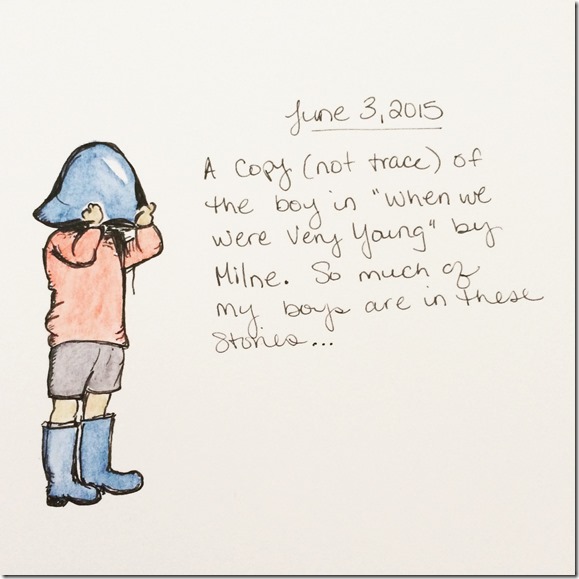 June 3, 2015
A copy (not trace) of
the boy in "When we
were Very Young" by
Milne. So much of
my boys are in these
stories...